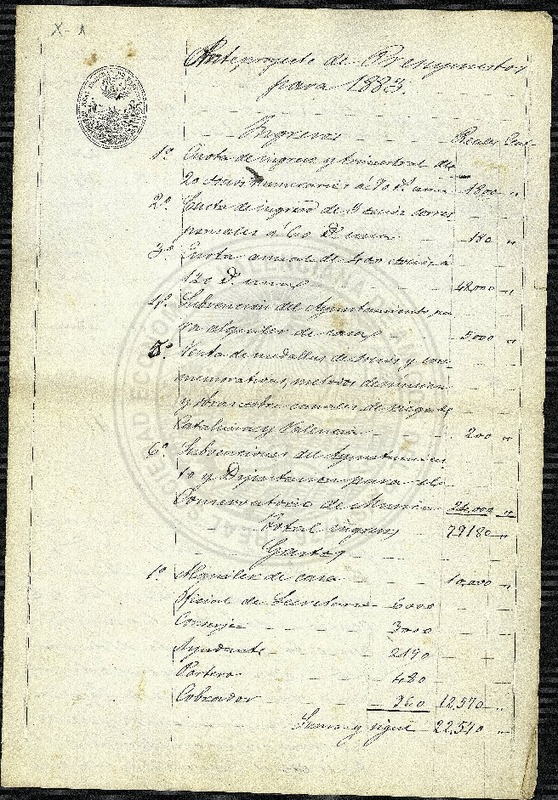 X-1
Anteproyecto de Presupuestos
para 1883.
Ingresos
Reales Cent.
1º Cuota de ingreso y trimestral de
20 socios numerarios á 90 rs. uno 1800 "
2º Cuota de ingreso de 3 socios corres
ponsales á 60 rs. cada 180 "
3º Cuota anual de 400 socios á
120 rs. uno 48,000 "
4º Subvencion del Ayuntamiento pa
ra alquiler de casa 5000 "
5º Venta de medallas de socios y con
memorativas, metros de
y obras sobre canales de riego de
Cataluña y Valencia 200 "
6º Subvenciones del Ayuntamien
to y Diputacion para el
Conservatorio de Musica 24,000 "
Total ingresos 79180 "
Gastos
1º Alquiler de casa 10,000 "
Oficial de Secretaria 6000
Conserje 3000
Ayudante 2190
Portero 480
Cobrador 960 12,570 "
Suma y sigue 22,570 "